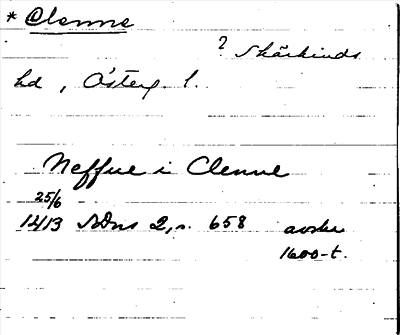 * Clenne
? Skärkinds
hd, Österg. l.
Neffue i Clenne
25/6
1413 SDns 2, s. 658 avskr
1600-t.